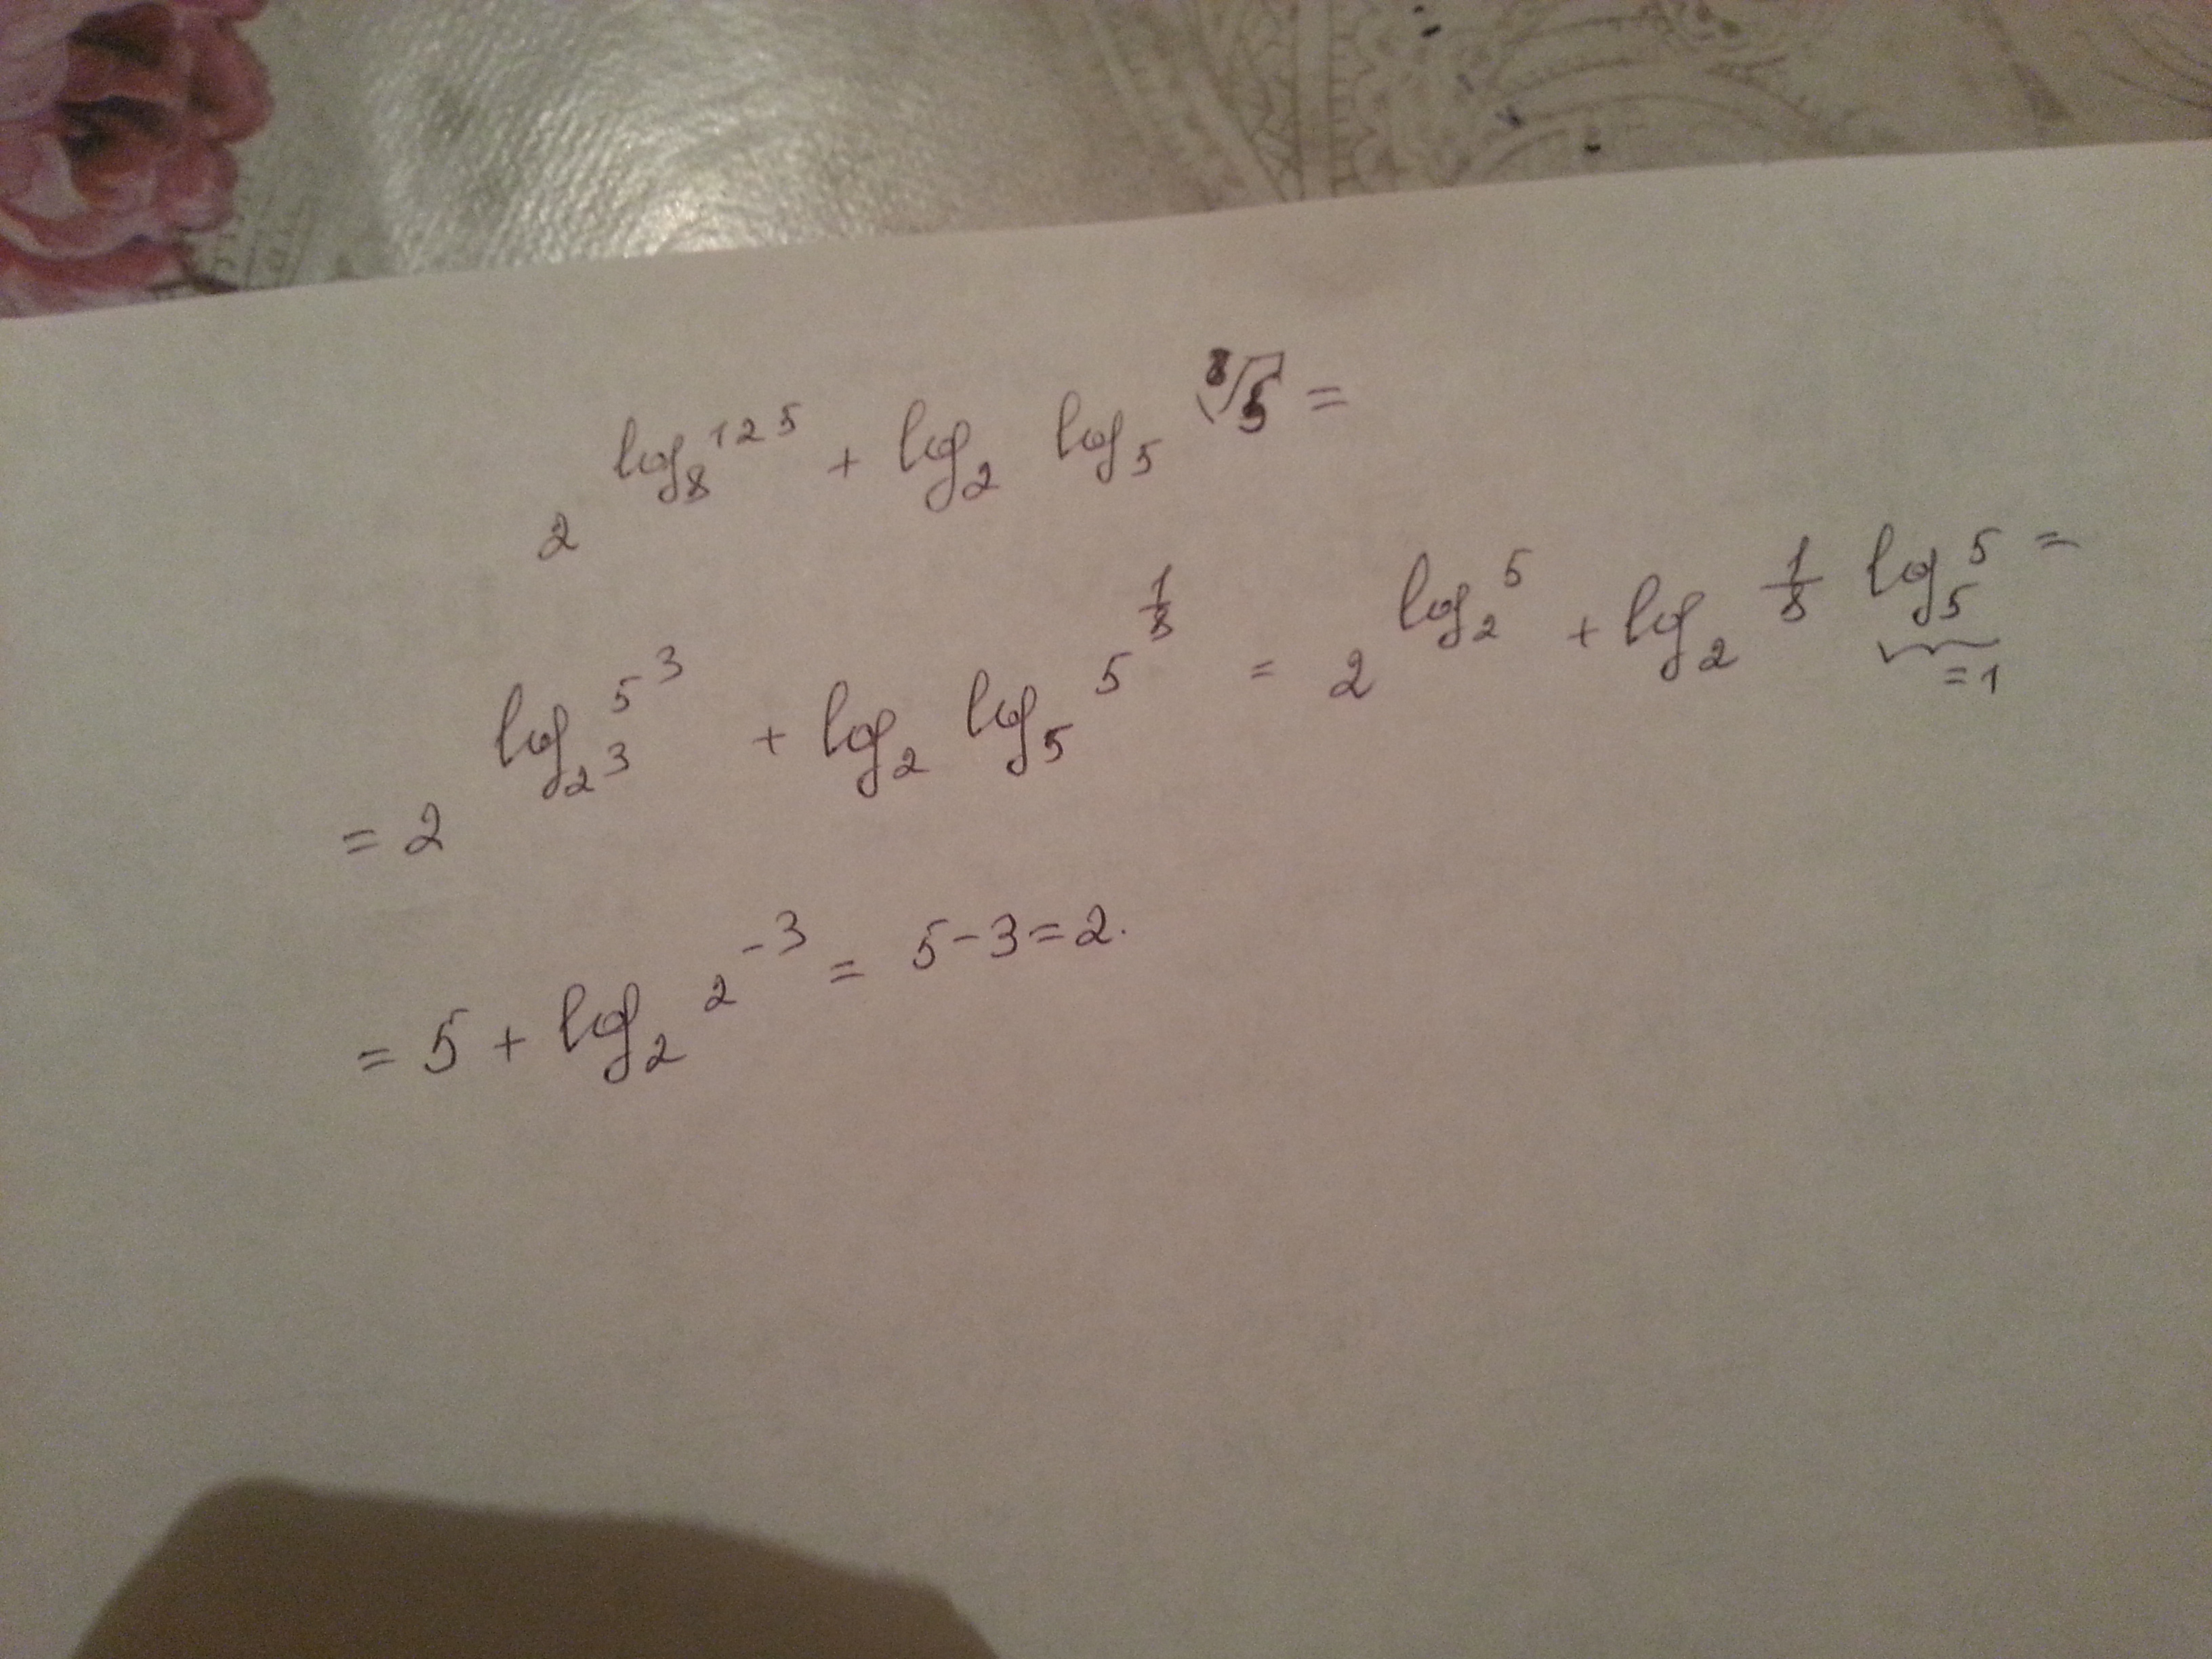 2^{log_8 125} + log_2 log_5 \sqrt[8]{5} =
= 2^{log_{2^3} 5^3} + log_2 log_5 5^{1/8} = 2^{log_2 5} + log_2 1/8 log_5 5 =
=1
= 5 + log_2 2^{-3} = 5-3=2.